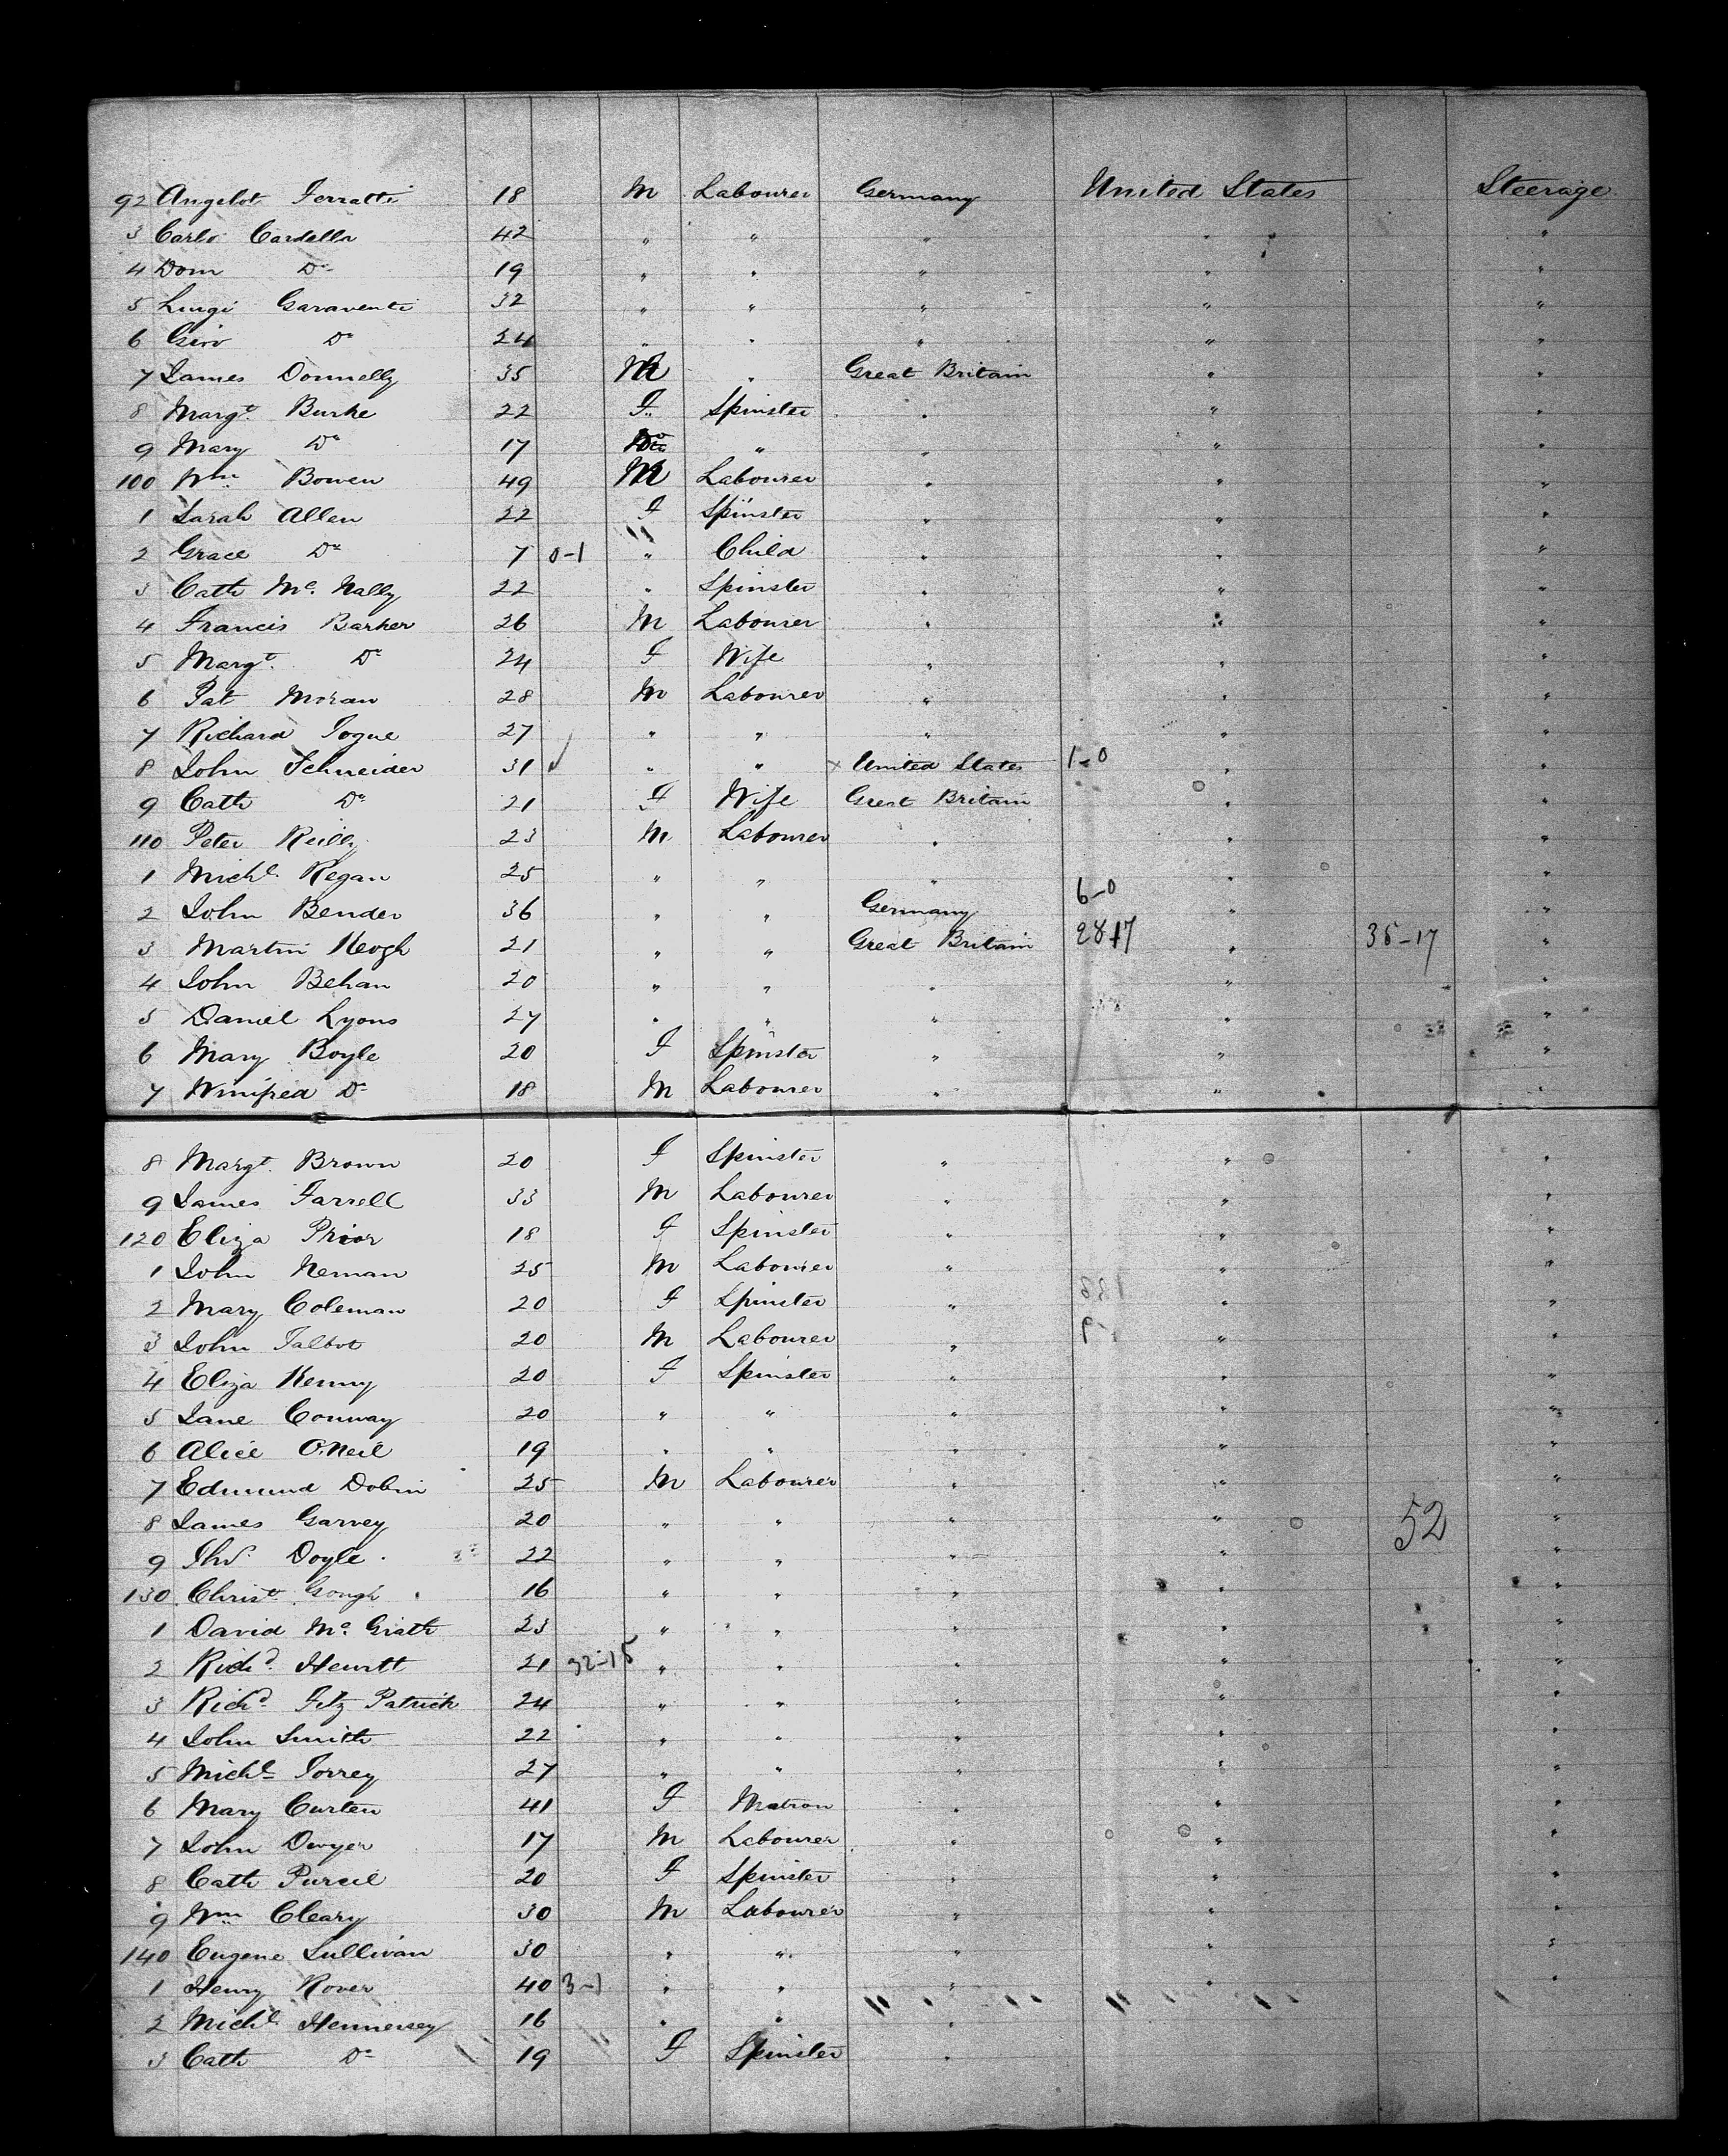 92 Angelot Ferratti 18 M Labourer Germany United States Steerage
3 Carlo Cardella 42 " " " " "
4 Dom Do 19 " " " " "
5 Luigi Garaventi 32 " " " " "
6 Giro Do 24 " " " " "
7 James Donnelly 35 M " Great Britain " "
8 Margt. Burke 22 F Spinster " " "
9 Mary Do 17 Do " " " "
100 Wm Bowen 49 M Labourer " " "
1 Sarah Allen 22 F Spinster " " "
2 Grace Do 7 0-1 " Child " " "
3 Cath Mc. Nally 22 " Spinster " " "
4 Francis Barker 26 M Labourer " " "
5 Margt. Do 24 F Wife " " "
6 Pat Moran 28 M Labourer " " "
7 Richard Fogue 27 " " " " "
8 John Schneider 31 ✓ " " x United States 1-0 " "
9 Cath Do 21 F Wife Great Britain " "
110 Peter Reilly 23 M Labourer " " "
1 Michl. Regan 25 " " " " "
2 John Bender 36 " " Germany 6-0 " "
3 Martin Keogh 21 " " Great Britain 28-17 " 35-17 "
4 John Behan 20 " " " " "
5 Daniel Lyons 27 " " " " "
6 Mary Boyle 20 F Spinster " " "
7 Winifred Do 18 M Labourer " " "
8 Margt. Brown 20 F Spinster " " "
9 James Farrell 33 M Labourer " " "
120 Eliza Prior 18 F Spinster " " "
1 John Kernan 25 M Labourer " " "
2 Mary Coleman 20 F Spinster " " "
3 John Talbot 20 M Labourer " " "
4 Eliza Kenny 20 F Spinster " " "
5 Jane Conway 20 " " " " "
6 Alice O.Neil 19 " " " " "
7 Edmund Dobin 25 M Labourer " " "
8 James Garvey 20 " " " " 52 "
9 Thos. Doyle 22 " " " " "
130 Christr. Gough 16 " " " " "
1 David Mc. Grath 23 " " " " "
2 Richd. Hewitt 21 32-15 " " " " "
3 Richd. Fitz Patrick 24 " " " " "
4 John Smith 22 " " " " "
5 Michl. Torrey 27 " " " " "
6 Mary Curten 41 F Matron " " "
7 John Dwyer 17 M Labourer " " "
8 Cath Purcil 20 F Spinster " " "
9 Wm Cleary 30 M Labourer " " "
140 Eugene Sullivan 30 " " " " "
1 Henry Rover 40 3-1 " " " " "
2 Michl. Hennersey 16 " " "
3 Cath Do 19 F Spinster "